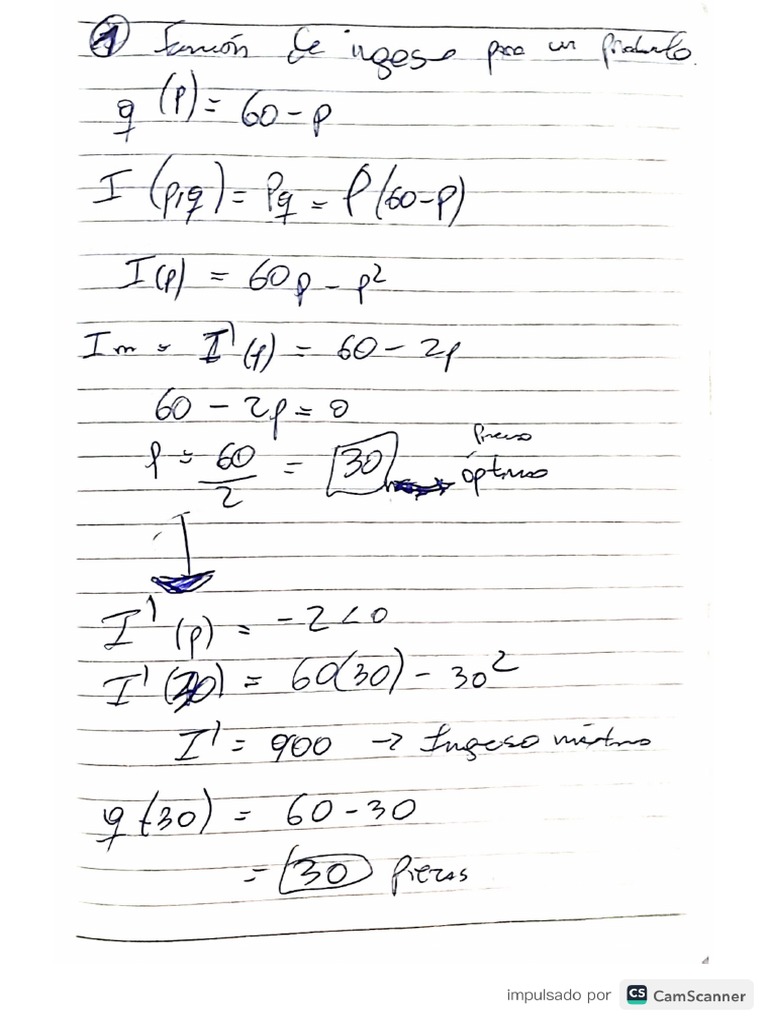 1 Función de ingreso para un producto.
q (p) = 60 - p
I (p,q) = Pq = P(60-p)
I(p) = 60p - p²
Im = I'(p) = 60 - 2p
60 - 2p = 0
p = 60/2 = 30 Precio óptimo
I'(p) = -2 < 0
I'(30) = 60(30) - 30²
I' = 900 -> Ingreso máximo
q(30) = 60 - 30
= 30 Piezas
impulsado por CS CamScanner